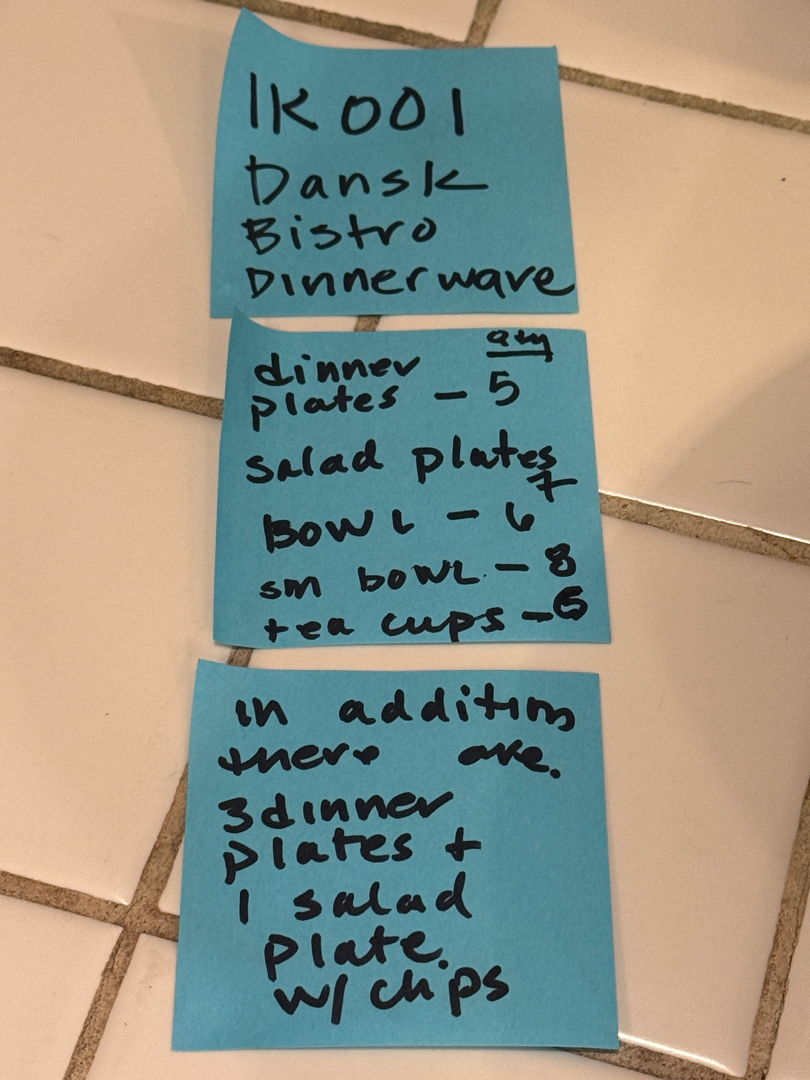 IK001
Dansk
Bistro
Dinnerwave
qty
dinner
plates - 5
salad plates
7
Bowl - 6
sm bowl. - 8
tea cups - 6
in addition
there are.
3 dinner
plates +
1 salad
plate.
w/ chips